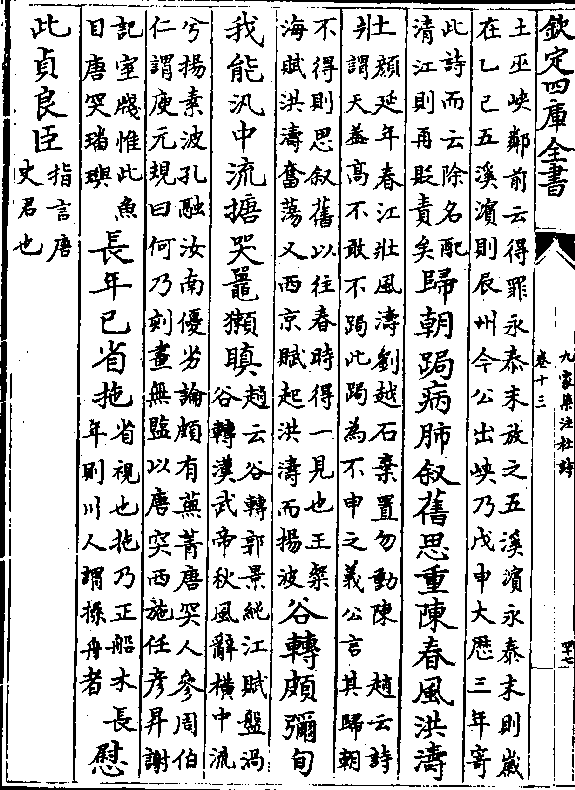 欽定四庫全書
九家集注杜詩
卷十三
四七
土巫峽鄰前云得罪永泰末放之五溪濱永泰末則歲
在乙巳五溪濱則辰州今公出峽乃戊申大歷三年寄
此詩而云除名配
清江則再貶責矣
歸朝跼病肺叙舊思重陳春風洪濤
壯
顏延年春江壯風濤劉越石棄置勿動陳 趙云詩
謂天葢高不敢不跼此跼為不申之義公言其歸朝
不得則思叙舊以往春時得一見也王粲
海賦洪濤奮蕩又西京賦起洪濤而揚波
谷轉頗彌旬
我能汎中流搪突鼉獺瞋
趙云谷轉郭景純江賦盤渦
谷轉漢武帝秋風辭橫中流
兮揚素波孔融汝南優劣論頗有蕪菁唐突人參周伯
仁謂庾元規曰何乃刻畫無鹽以唐突西施任彦昇謝
記室牋惟此魚
目唐突璠璵
長年已省拖
省視也拖乃正船木長
年則川人謂操舟者
慰
此貞良臣
指言唐
史君也